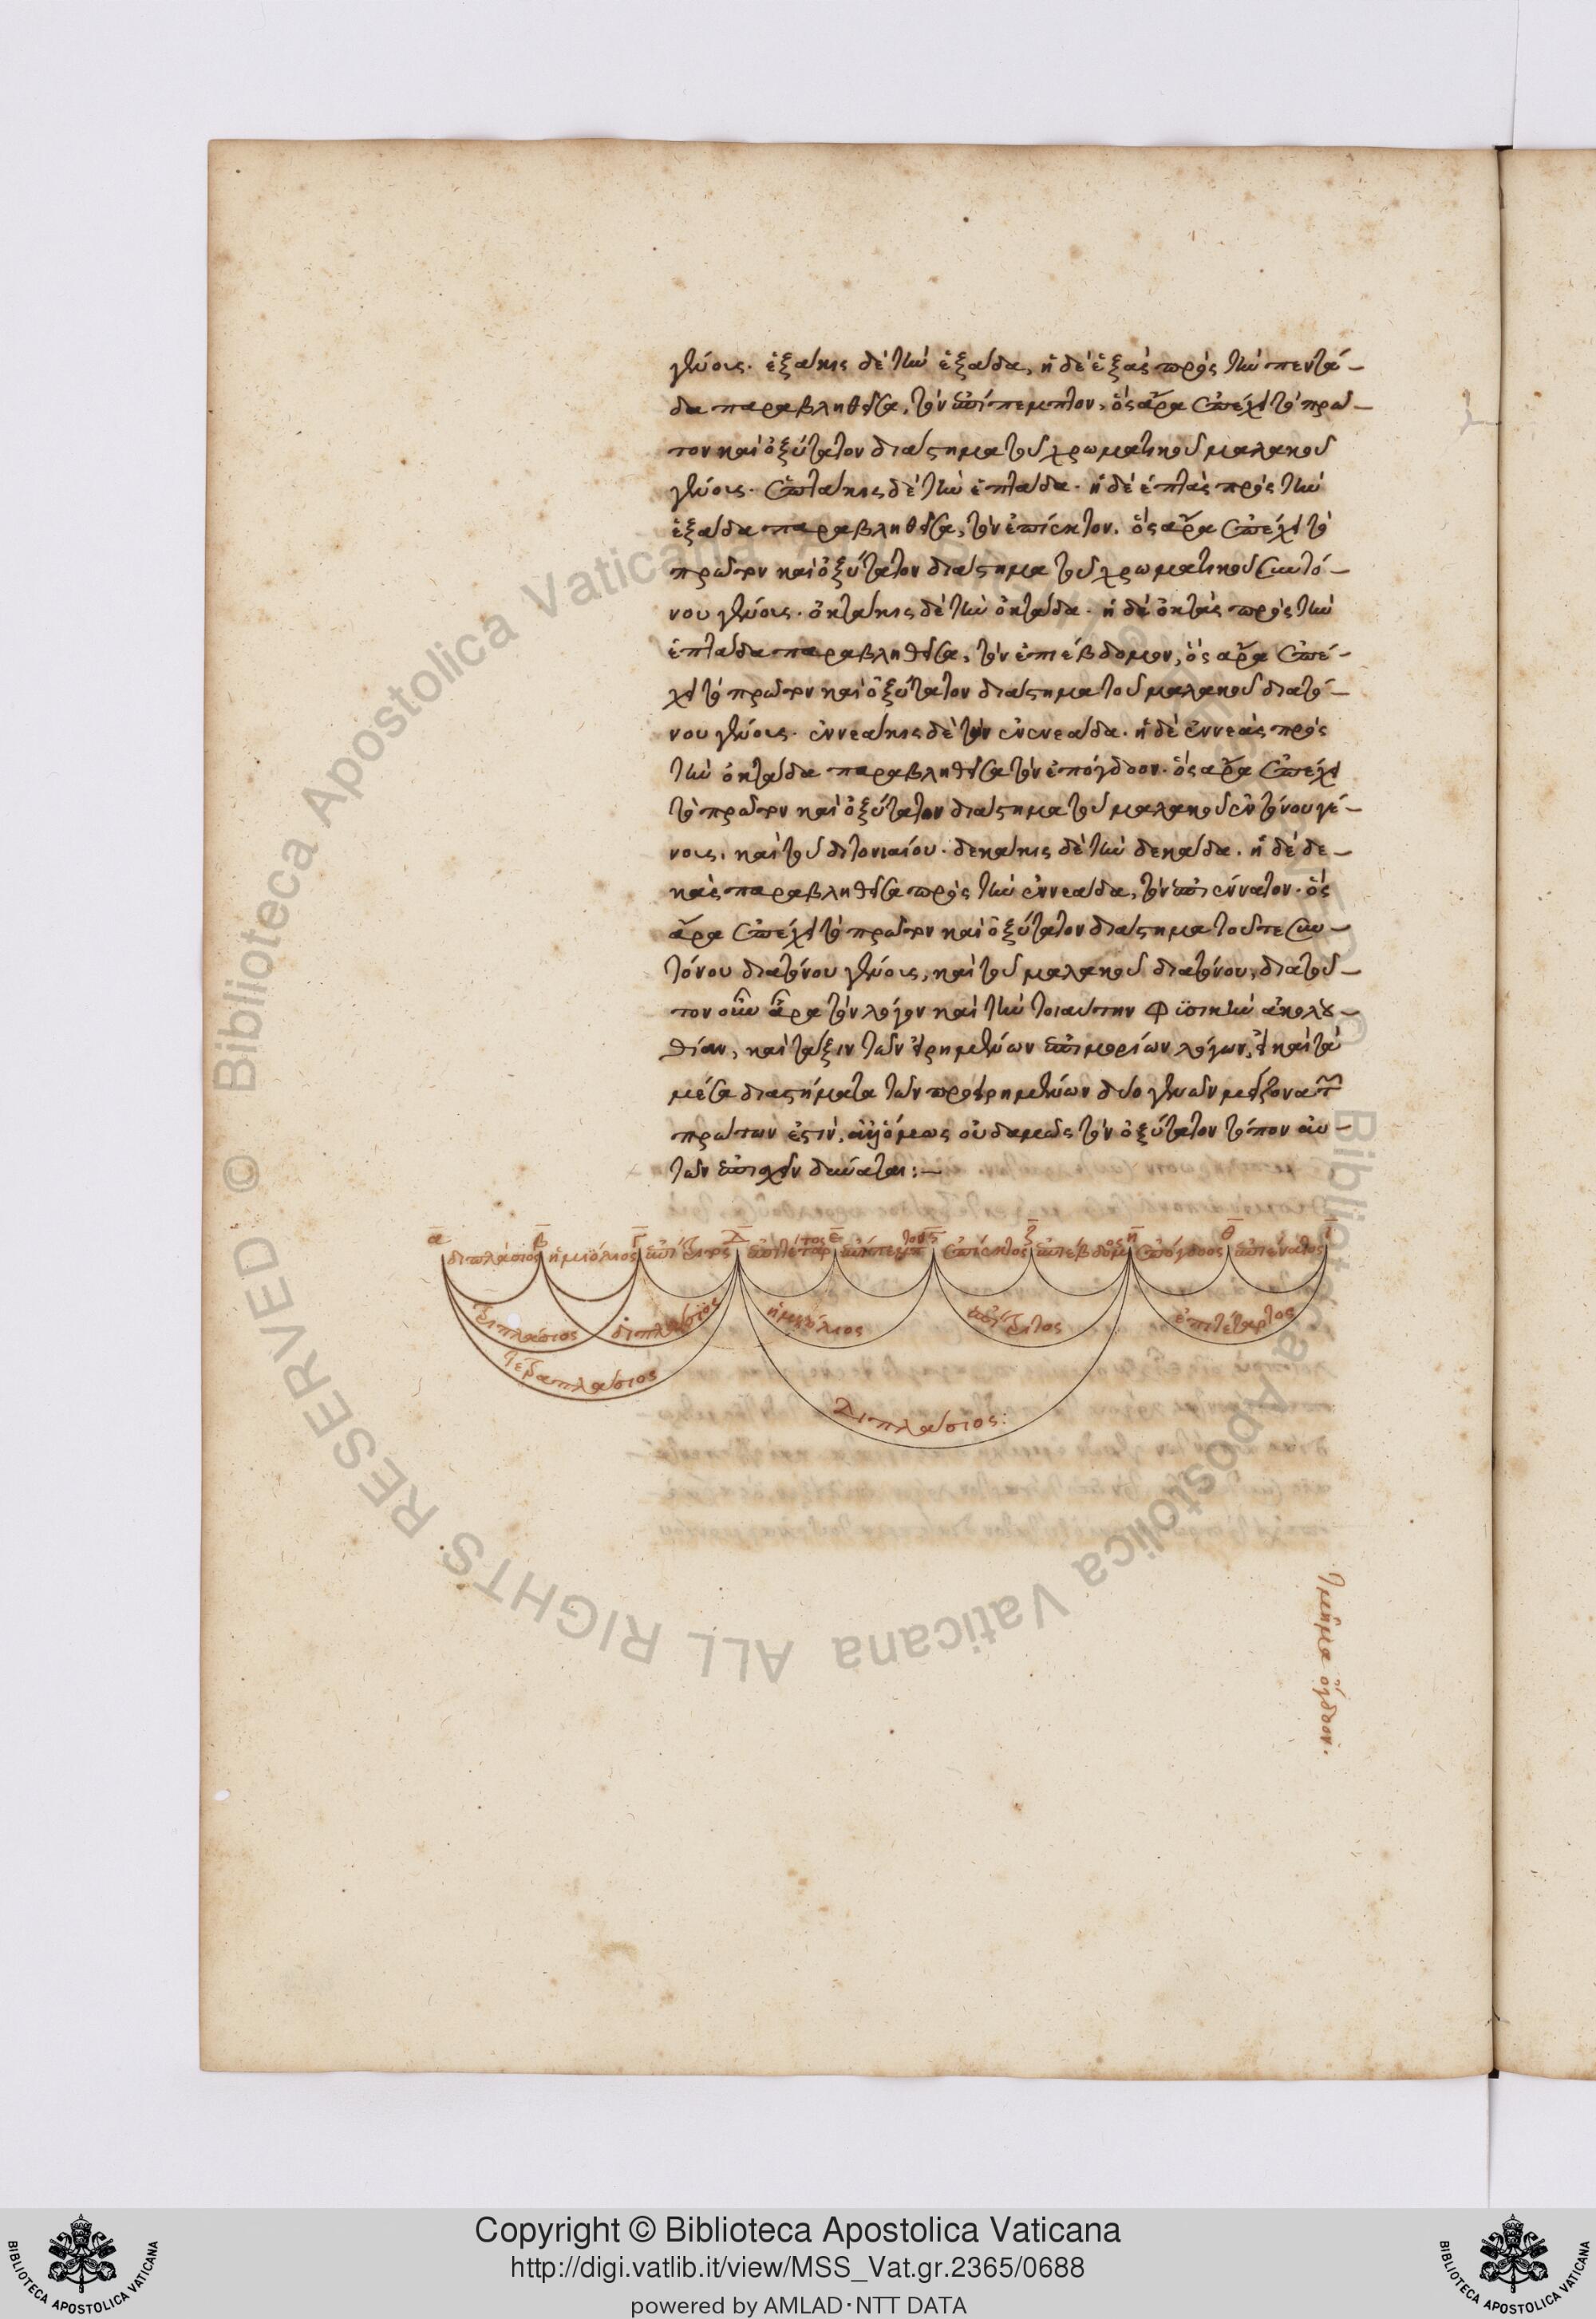 γένους. ἑξάκις δὲ τὴν ἑξάδα, ἡ δὲ ἑξὰς πρὸς τὴν πεντά-
δα παραβληθεῖσα, τὸν ἐπίπεμπτον, ὃς ἄρα ἐπέχει τὸ πρῶ-
τον καὶ ὀξύτατον διάστημα τοῦ χρωματικοῦ μαλακοῦ
γένους. ἑπτάκις δὲ τὴν ἑπτάδα. ἡ δὲ ἑπτὰς πρὸς τὴν
ἑξάδα παραβληθεῖσα, τὸν ἐπίεκτον. ὃς ἄρα ἐπέχει τὸ
πρῶτον καὶ ὀξύτατον διάστημα τοῦ χρωματικοῦ συντό-
νου γένους. ὀκτάκις δὲ τὴν ὀκτάδα. ἡ δὲ ὀκτὰς πρὸς τὴν
ἑπτάδα παραβληθεῖσα, τὸν ἐπιέβδομον, ὃς ἄρα ἐπέ-
χει τὸ πρῶτον καὶ ὀξύτατον διάστημα τοῦ μαλακοῦ διατό-
νου γένους. ἐννεάκις δὲ τὴν ἐννεάδα. ἡ δὲ ἐννεὰς πρὸς
τὴν ὀκτάδα παραβληθεῖσα τὸν ἐπόγδοον. ὃς ἄρα ἐπέχει
τὸ πρῶτον καὶ ὀξύτατον διάστημα τοῦ μαλακοῦ ἐντόνου γέ-
νους, καὶ τοῦ διτονιαίου. δεκάκις δὲ τὴν δεκάδα. ἡ δὲ δε-
κὰς παραβληθεῖσα πρὸς τὴν ἐννεάδα, τὸν ἐπιέννατον. ὃς
ἄρα ἐπέχει τὸ πρῶτον καὶ ὀξύτατον διάστημα τοῦ τε συν-
τόνου διατόνου γένους, καὶ τοῦ μαλακοῦ διατόνου, διὰ τοῦ-
τον οὖν ἄρα τὸν λόγον καὶ τὴν τοιαύτην φϋσικὴν ἀκολου-
θίαν, καὶ τάξιν τῶν εἰρημένων ἐπιμορίων λόγων, εἰ καὶ τὰ
μέσα διαστήματα τῶν προειρημένων δύο γενῶν μείζονα τῶν
πρώτων ἐστὶν, ἀλλ' ὅμως οὐδαμῶς τὸν ὀξύτατον τόπον αὐ-
τῶν ἐπισχεῖν δύναται:—
α β γ Δ ε ς ζ η θ ι
διπλάσιος ἡμιόλιος ἐπίτριτος ἐπιτέταρτος ἐπίπεμπτος ἐπίεκτος ἐπιέβδομος ἐπόγδοος ἐπιένατος
τριπλάσιος διπλάσιος ἡμιόλιος ἐπίτριτος ἐπιτέταρτος
τετραπλάσιος
Διπλάσιος:
τμῆμα ὄγδοον.
© Biblioteca Apostolica Vaticana ALL RIGHTS RESERVED
Copyright © Biblioteca Apostolica Vaticana
http://digi.vatlib.it/view/MSS_Vat.gr.2365/0688
powered by AMLAD·NTT DATA
BIBLIOTECA APOSTOLICA VATICANA
BIBLIOTECA APOSTOLICA VATICANA